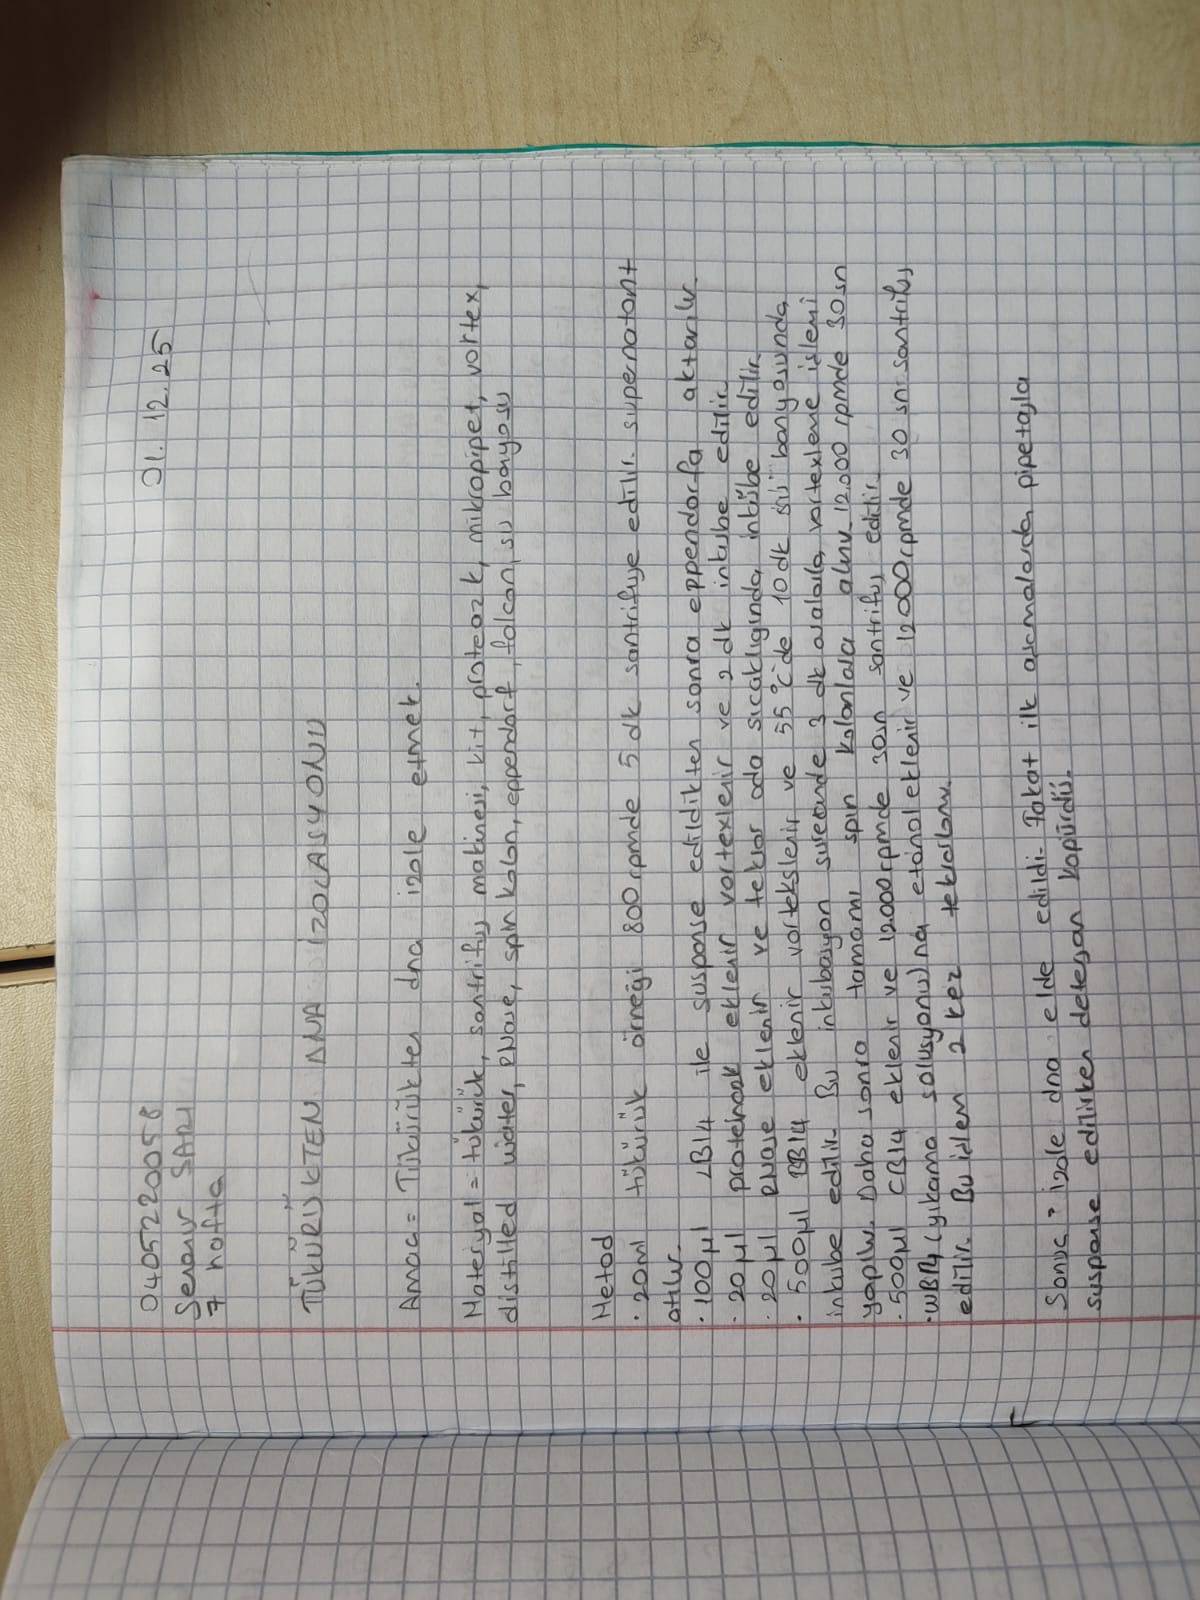 01.12.25
0405220058
Senanur SARI
7 hafta
TÜKÜRÜKTEN DNA İZOLASYONU
Amac = Tükürükten dna izole etmek.
Materyal = tükürük, santrifüj makinesi, kit, proteaz k, mikropipet, vortex,
distilled water, RNase, spin kolon, eppendorf, falcon, su banyosu
Metod
• 20ml tükürük örneği 800 rpmde 5 dk santrifuje edilir. supernatant
atılır.
• 100μl LB14 ile suspanse edildikten sonra eppendorfa aktarılır.
• 20μl proteinazk eklenir vortexlenir ve 2 dk inkube edilir.
20μl RNase eklenir ve tekrar oda sıcaklıgında inkübe edilir.
• 500μl BB14 eklenir vortekslenir ve 55°C de 10 dk su banyosunda
inkube edilir. Bu inkubasyon suresınde 3 dk aralarla vortexleme islemi
yapılır. Daha sonra tamamı spın kolonlara alınır 12.000 rpmde 30sn
santrifuj edilir.
• 500μl CB14 eklenir ve 12000rpmde 30sn
• WB14 (yıkama solusyonu) na etanol eklenir ve 12000rpmde 30 sn santrifuj
edilir. Bu islem 2 kez tekrarlanır.
Sonuc = izole dna elde edildi. Fakat ilk asamalarda pipetajla
suspanse edilirken deterjan köpürdü.